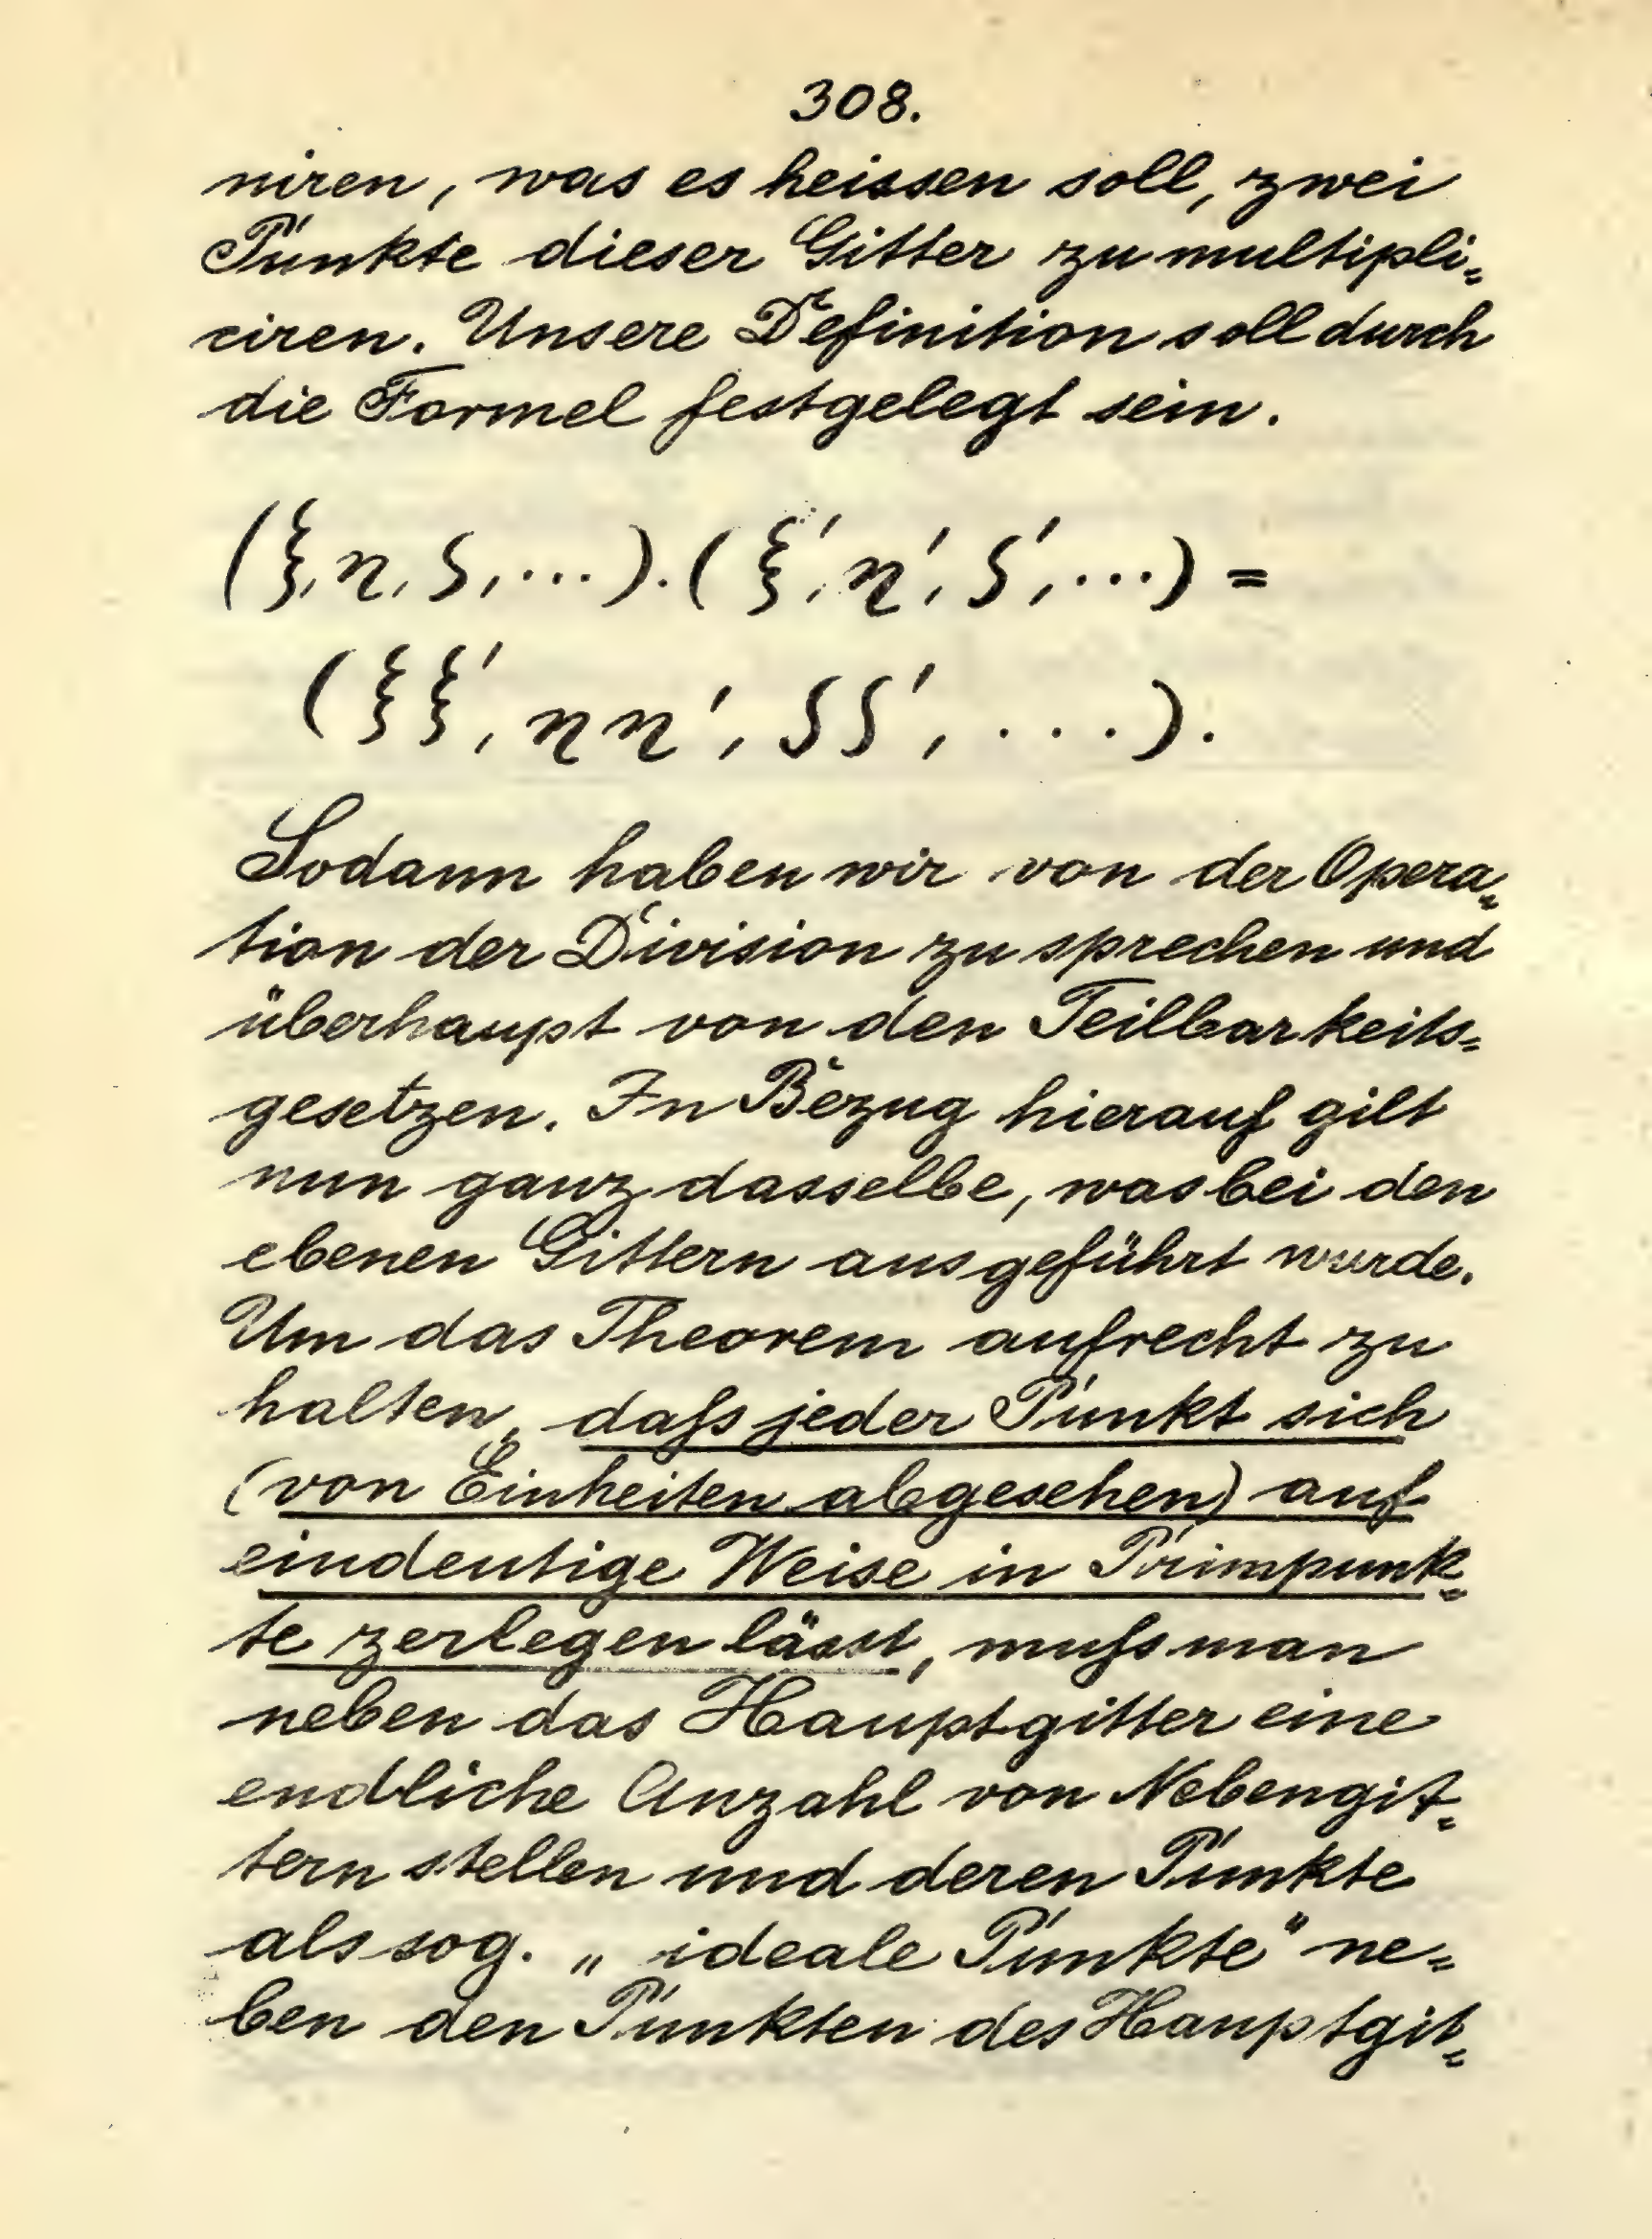 308.
niren, was es heissen soll, zwei
Punkte dieser Gitter zu multipli-
ciren. Unsere Definition soll durch
die Formel festgelegt sein.
(ξ, η, ζ, ...).(ξ', η', ζ', ...) =
(ξξ', ηη', ζζ', ...).
Sodann haben wir von der Opera-
tion der Division zu sprechen und
überhaupt von den Teilbarkeits-
gesetzen. In Bezug hierauf gilt
nun ganz dasselbe, was bei den
ebenen Gittern ausgeführt wurde.
Um das Theorem aufrecht zu
halten, daſs jeder Punkt sich
(von Einheiten abgesehen) auf
eindeutige Weise in Primpunk-
te zerlegen lässt, muſs man
neben das Hauptgitter eine
endliche Anzahl von Nebengit-
tern stellen und deren Punkte
als sog. „ideale Punkte" ne-
ben den Punkten des Hauptgit-